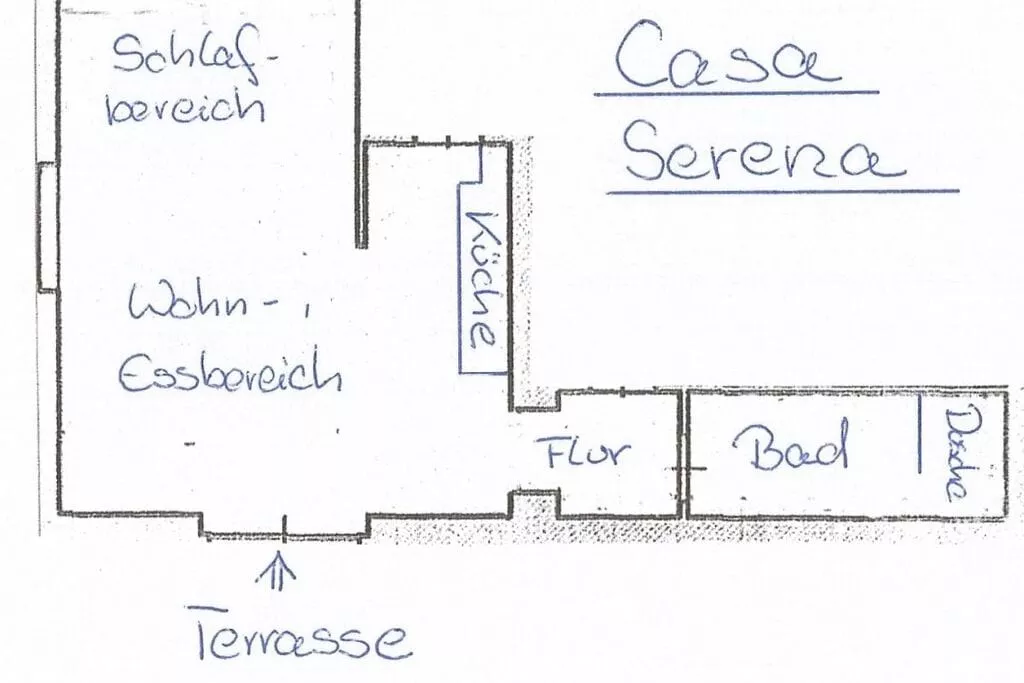 Casa
Serena
Schlaf-
bereich
Küche
Wohn-,
Essbereich
Flur
Bad
Dusche
Terrasse